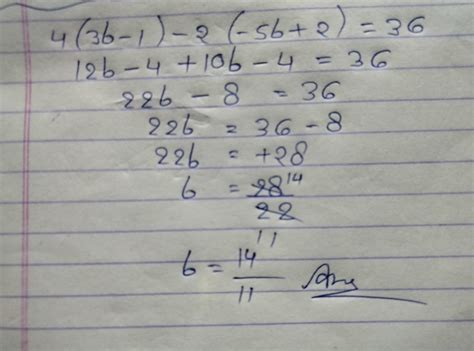 4(3b-1)-2(-5b+2)=36
12b-4+10b-4=36
22b-8=36
22b=36-8
22b=+28
b=28/22 14/11
b=14/11 Ans